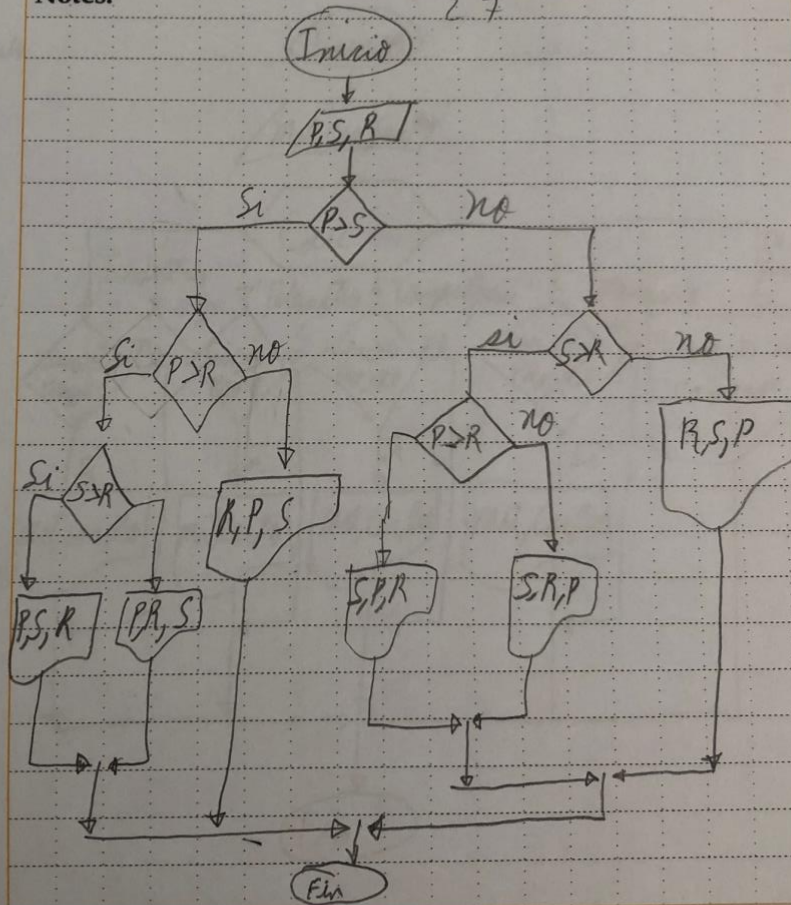 Notes:
27
Inicio
P, S, R
Si
P>S
no
Si
P>R
no
si
S>R
no
Si
S>R
R, P, S
P>R
no
R, S, P
P, S, R
P, R, S
S, P, R
S, R, P
Fin